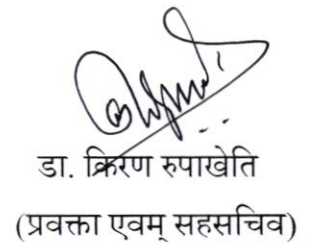 डा. किरण रुपाखेति
(प्रवक्ता एवम् सहसचिव)